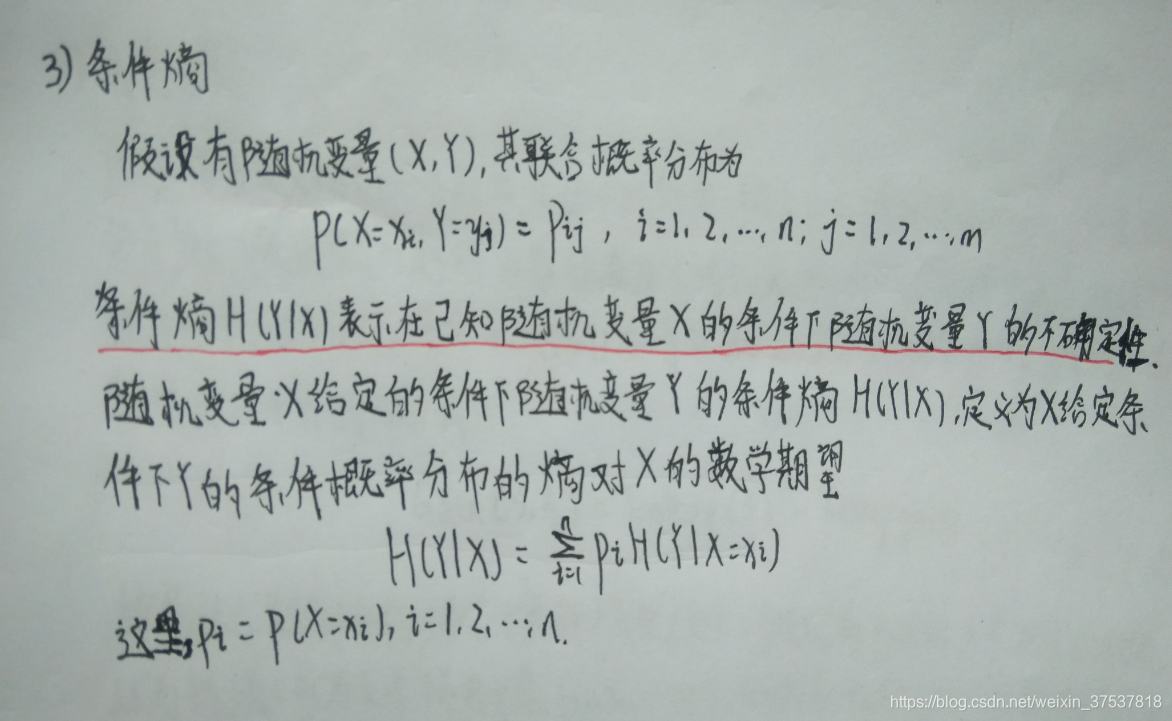 3) 条件熵
假设有随机变量(X,Y),其联合概率分布为
P(X=xi, Y=yj) = Pij , i=1, 2, …, n; j=1, 2, …, m
条件熵H(Y|X)表示在已知随机变量X的条件下随机变量Y的不确定性.
随机变量X给定的条件下随机变量Y的条件熵H(Y|X),定义为X给定条
件下Y的条件概率分布的熵对X的数学期望
H(Y|X) = ∑ⁿᵢ₌₁ piH(Y|X=xi)
这里,pi = P(X=xi), i=1, 2, …, n.
https://blog.csdn.net/weixin_37537818